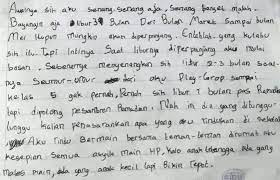 Awalnya sih aku senang-senang aja, senang banget malah.
Bayangin aja libur 3 Bulan Dari Bulan Maret sampai bulan
Mei Itupun mungkin akan diperpanjang. Entahlah yang kutahu
sih itu. Tapi Intinya Saat liburnya diperpanjang aku mulai
bosan. Sebenernya menyenangkan sih libur 2-3 bulan soal-
nya Seumur-umur dari aku Play-Grop sampai
kelas 5 gak pernah, Pernah sih libur 1 bulan pas Ramadan
tapi dipotong pesantren Ramadan. Nah ini dia yang ditunggu
tunggu kalian penasarankan apa yang aku rindukan di sekolah
Aku rindu Bermain bersama teman-teman dirumah aku
kesepian Semua asyik main HP, kalo anak tetangga ada yang
males main, ada yang anak kecil lagi Bikin Repot.